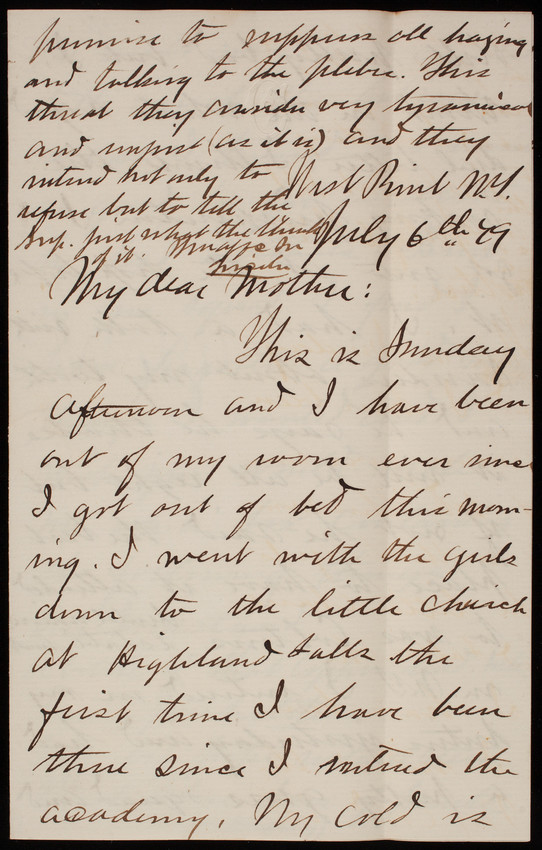 promise to suppress all hazing
and talking to the plebes. This
threat they consider very tyrannical
and unjust (as it is) and they
intend not only to
refuse but to tell the
Sup. just what they think
of it.
inside
West Point N.Y.
July 6th 79
My dear Mother:
This is Sunday
afternoon and I have been
out of my room ever since
I got out of bed this morn-
ing. I went with the girls
down to the little church
at Highland Falls the
first time I have been
there since I entered the
academy. My cold is